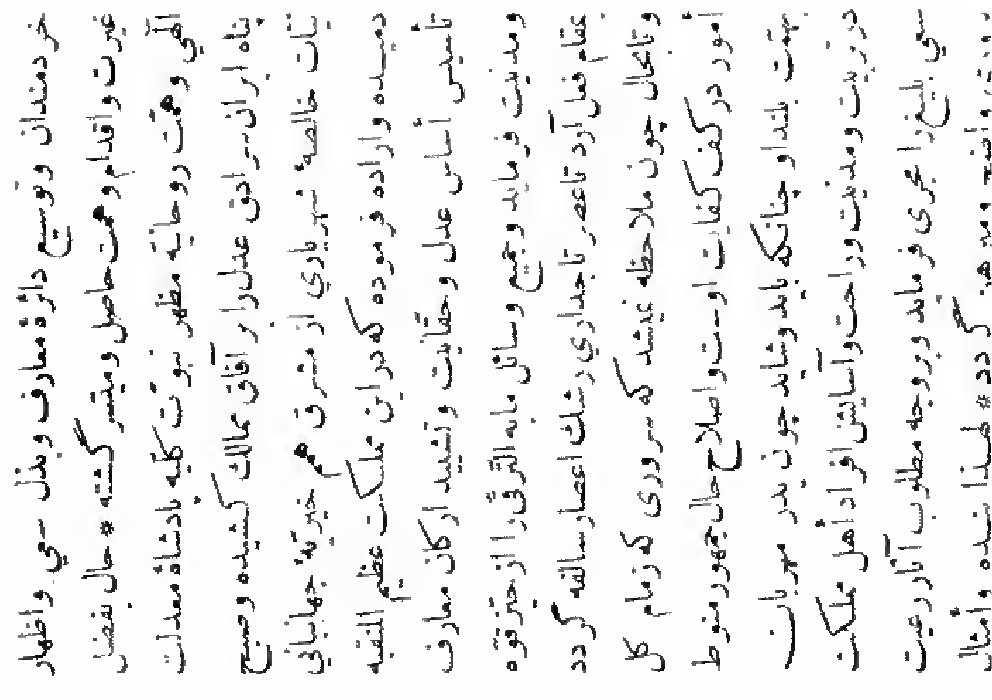 خردمندان و توسیع دائرهٔ معارف و بذل سعي واظهار
غیرت واقدام وهمت حاصل ومیسّر گشته * حال بفضل
الهي وهمّت روحانیّه مظهر نبوّت کلّیه پادشاه معدلت
پناه ایران سرادق عدل را بر آفاق ممالك کشیده وصبح
نیّات خالصهٔ شهریاري از مشرق همم خیریّهٔ جهانباني
دمیده واراده فرموده که در این مملکت عظیم المنقبه
تأسیس أساس عدل وحقّانیت و تشیید ارکان معارف
ومدنیت فرماید وجمیع وسائل مابه الترقّي را از حیّز قوه
بمقام فعل آرد تا عصر تاجداري رشك اعصار سالفه گردد
و تابحال چون ملاحظه نمیشد که سروری که زمام کل
أمور در کف کفایت اوست واصلاح حال جمهور منوط
بهمّت بلند او چنانکه باید وشاید چون پدر مهربان
در تربیت ومدنیت وراحت وآسایش افراد أهل مملکت
سعي بلیغ را مجری فرماید وبر وجه مطلوب آثار رعیت
واضح ومبرهن گردد * لهذا بنده وأمثال